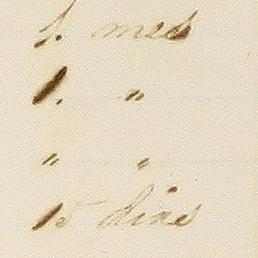 1. mes
1. "
" "
15 dias